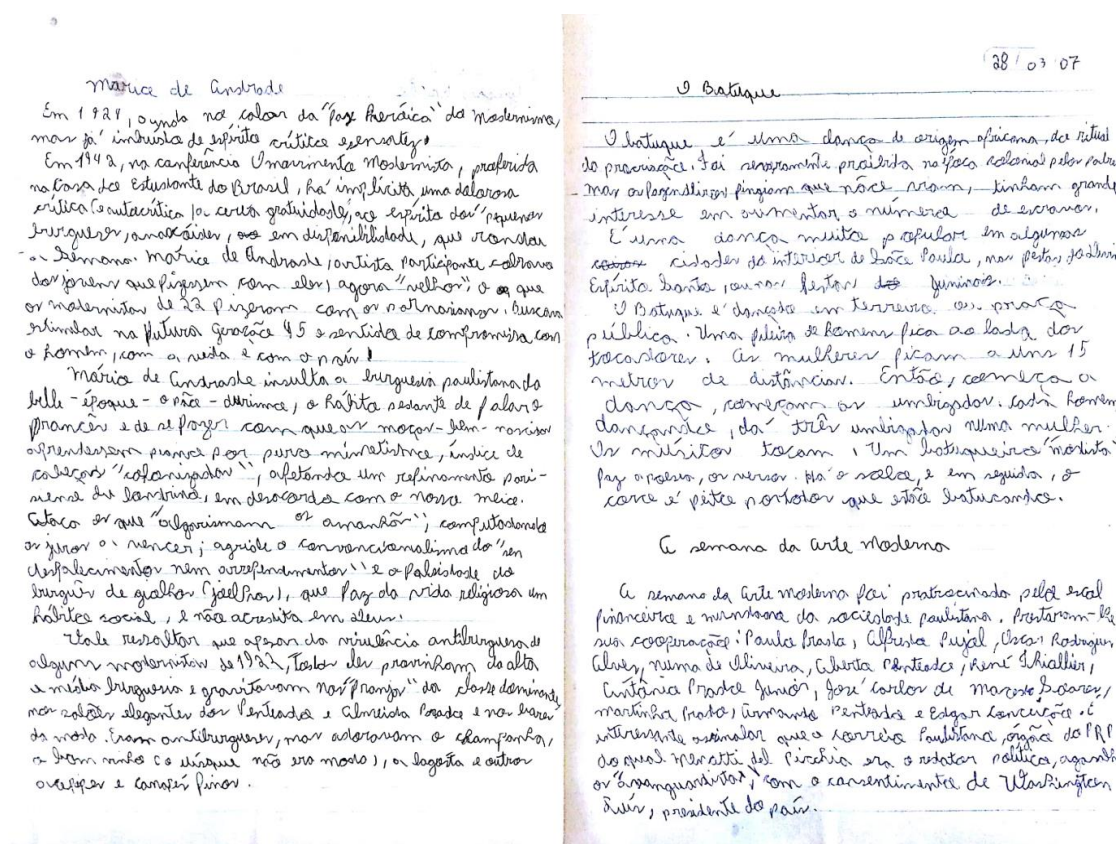 Mário de Andrade
Em 1924, ainda no calor da "fase heróica" do Modernismo,
mas já imbuído de espírito crítico e sensatez,
Em 1942, na conferência O movimento Modernista, proferida
na Casa do Estudante do Brasil, há implícita uma dolorosa
crítica (e autocrítica) a certa gratuidade, ao espírito dos "pequenos
burgueses, em disponibilidade, que rondou
a Semana. Mário de Andrade, artista participante cobrava
dos jovens que fizessem com eles, agora "velhos", o que
os modernistas de 22 fizeram com os parnasianos. Buscava
estimular na futura geração 45 o sentido de compromisso com
o homem, com a vida e com o país!
Mário de Andrade insulta a burguesia paulistana da
belle-époque - o pão-durismo, o hábito sedante de falar o
francês e de se fazer com que os moços-bem-nascidos
aprendessem piano por puro mimetismo, índice de
cabeças "colonizadas", afetando um refinamento pari-
siense du londrino, em desacordo com o nosso meio.
Ataca os que "algarismam os amanhãs", computadando
os juros a vencer; agride o convencionalismo do "sem
desfalecimentos nem arrependimentos" e a falsidade do
burguês de giolhos (joelhos), que faz da vida religiosa um
hábito social, e não acredita em Deus.
Vale ressaltar que apesar da virulência antiburguesa de
alguns modernistas de 1922, Todos eles provinham da alta
e média burguesia e gravitavam nas "franjas" da classe dominante,
nos salões elegantes dos Penteado e Almeida Prado e nos bares
da moda. Eram antiburgueses, mas adoravam o champanha,
o bom vinho (o uísque não era moda), a lagosta e outros
acepipes e canapés finos.
28/03/07
O Batuque
O batuque é uma dança de origem africana, do ritual
da procriação. Foi severamente proibida na época colonial pelos padres
mas os fazendeiros fingiam que não viam, tinham grande
interesse em aumentar o número de escravos.
É uma dança muito popular em algumas
cidades do interior de São Paulo, nas festas do Divino
Espírito Santo, ou nas festas juninas.
O Batuque é dançado em terreiro ou praça
pública. Uma fileira de homens fica ao lado dos
tocadores. As mulheres ficam a uns 15
metros de distância. Então, começa a
dança, começam as umbigadas. Cada homem
dançando, dá três umbigadas numa mulher.
Os músicos tocam. Um batuqueiro "modista"
faz a poesia, os versos. Há o solo, e em seguida, o
coro é feito por todos que estão batucando.
A semana da Arte Moderna
A semana da Arte moderna foi patrocinada pelo escol
financeiro e mundano da sociedade paulistana. Prestaram-lhe
sua cooperação: Paulo Prado, Alfredo Pujol, Oscar Rodrigues
Alves, Numa de Oliveira, Alberto Penteado, René Thiollier,
Antônio Prado Júnior, José Carlos de Macedo Soares,
martinho Prado, Armando Penteado e Edgar Conceição. É
interessante assinalar que o Correio Paulistano, órgão do PRP
do qual Menotti del Picchia era o redator político, agasalh
os "avanguardistas", com o consentimento de Washington
Luís, presidente do país.